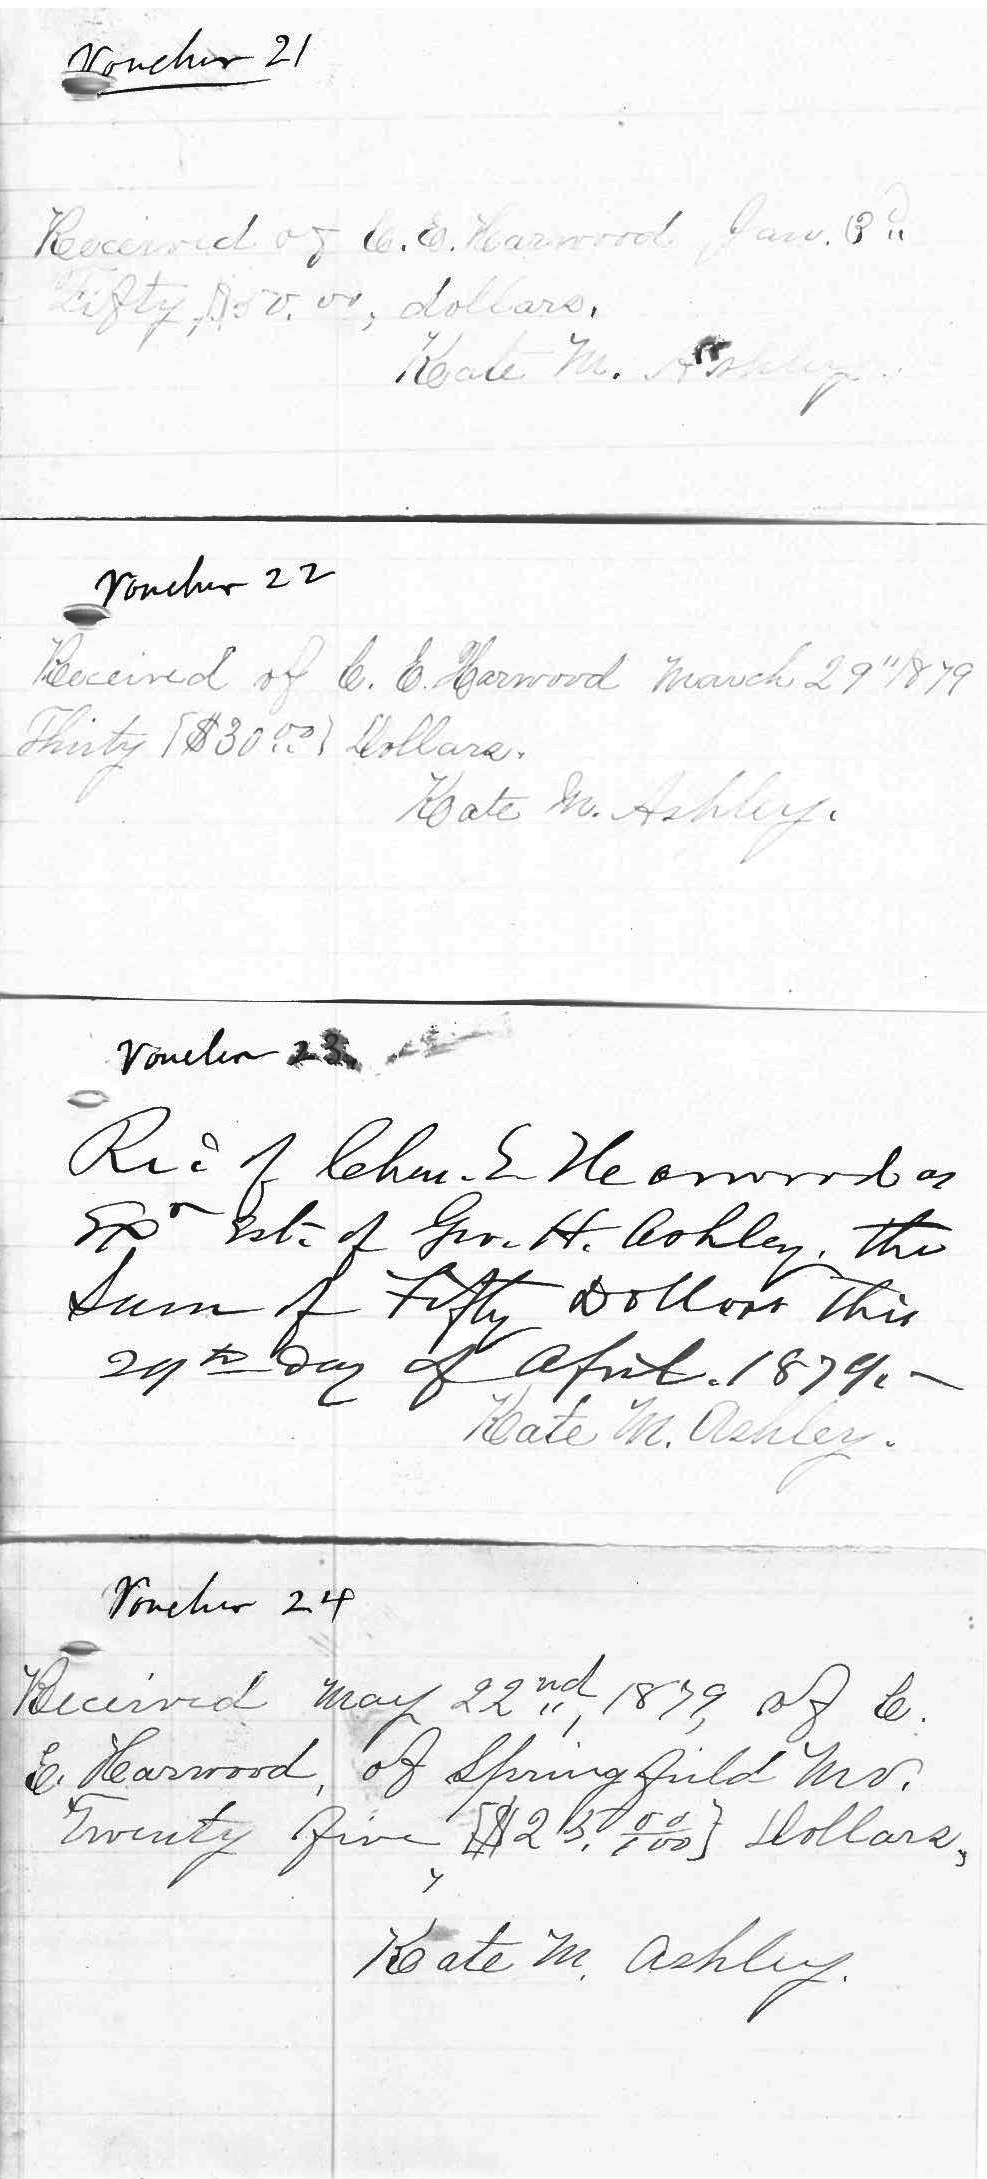 Voucher 21
Received of C. E. Harwood Jan. 3d
Fifty, $50.00, dollars.
Kate M. Ashley.
Voucher 22
Received of C. E. Harwood March 29" 1879
Thirty {$30.00} Dollars.
Kate M. Ashley.
Voucher 23
Rec'd of Chas. E Harwood as
Exr Est. of Geo. H. Ashley, the
Sum of Fifty Dollars this
29th day of April. 1879. —
Kate M. Ashley.
Voucher 24
Received May 22nd, 1879, of C.
E. Harwood, of Springfield Mo.
Twenty five {$25. 00/100} Dollars,
Kate M. Ashley.